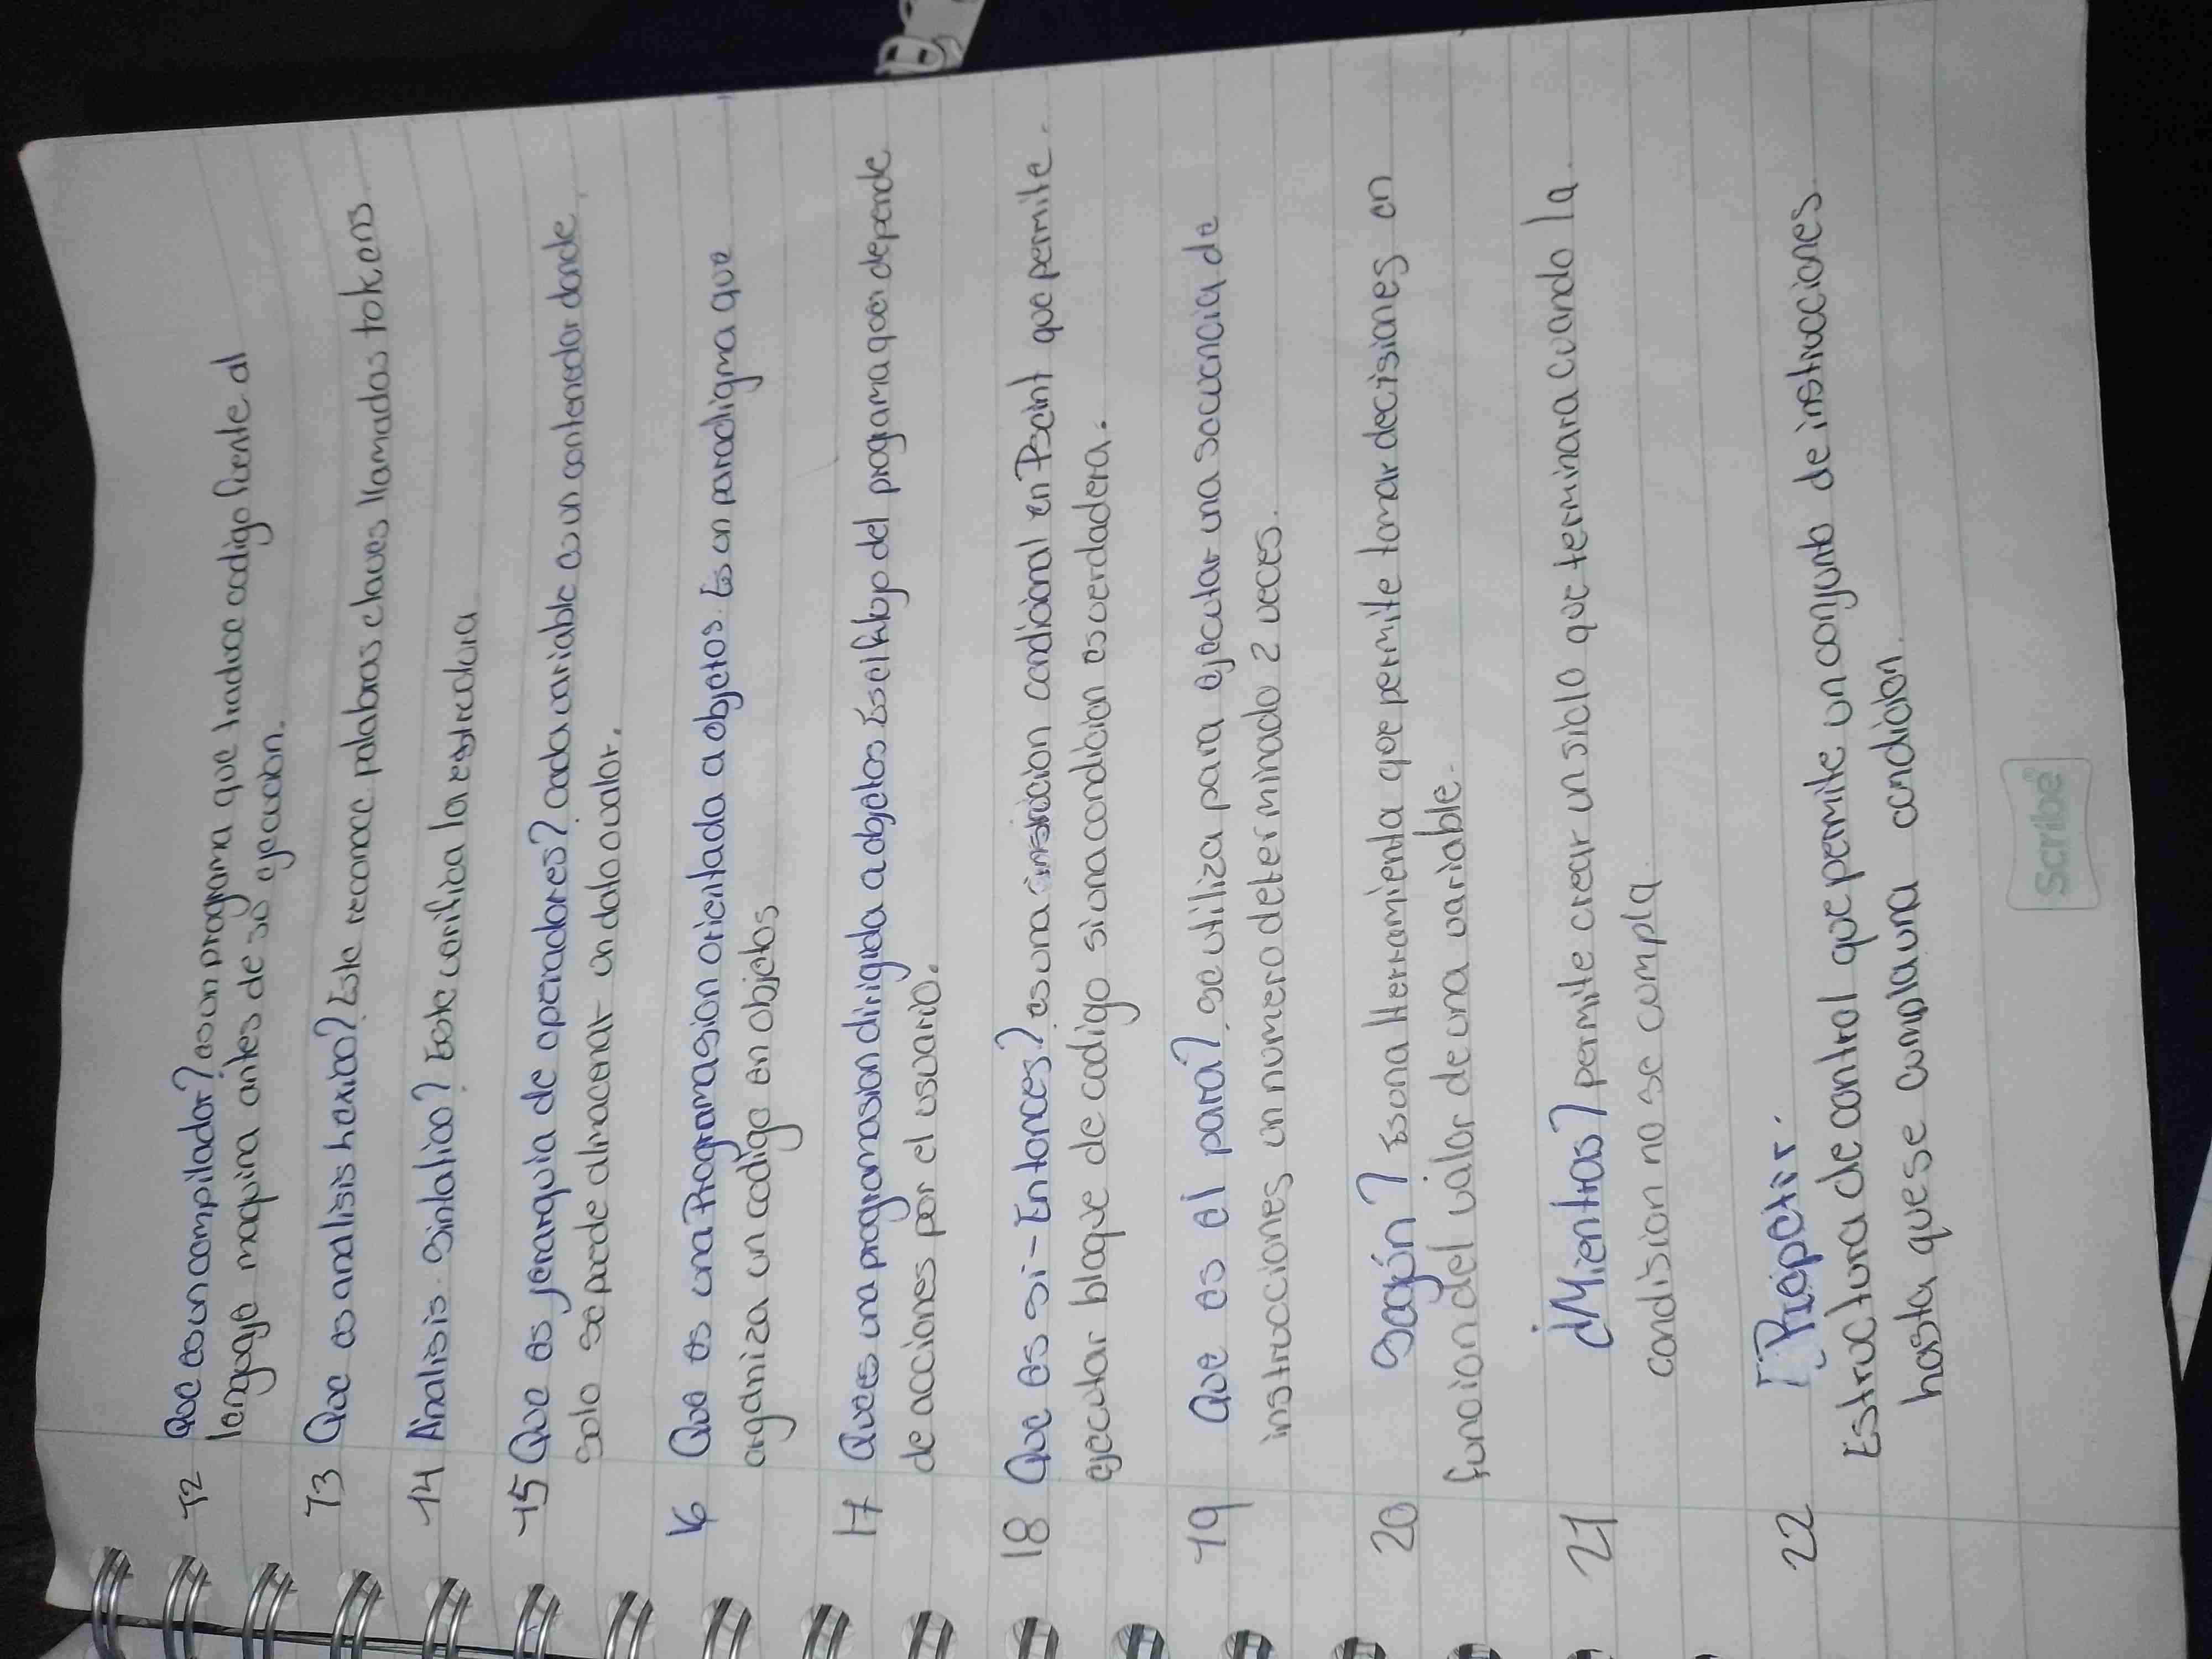 12 Que es un compilador? es un programa que traduce codigo fuente al
lenguaje maquina antes de su ejecucion.
13 Que es analisis hexico? Este reconoce palabras claves llamadas tokens
14 Analisis sintatico? Este verifica la estructura
15 Que es jerarquia de operadores? cada variable es un contenedor donde
solo se puede almacenar un dato o valor.
16 Que es una Programasion orientada a objetos. Es un paradigma que
organiza un codigo en objetos
17 Que es una programasion dirigida a objetos Es el flujo del programa que depende
de acciones por el usuario.
18 Que es si-Entonces? es una condicional en Pscint que permite
ejecutar bloque de codigo si una condicion es verdadera.
19 Que es el para? se utiliza para ejecutar una secuencia de
instrucciones un numero determinado 2 veces.
20 Según? Es una Herramienta que permite tomar decisiones en
funcion del valor de una variable.
21 ¿Mientras? permite crear un siclo que terminara cuando la
condision no se cumpla
22 Repetir.
Estructura de control que permite un conjunto de instrucciones
hasta que se cumpla una condicion.
Scribe